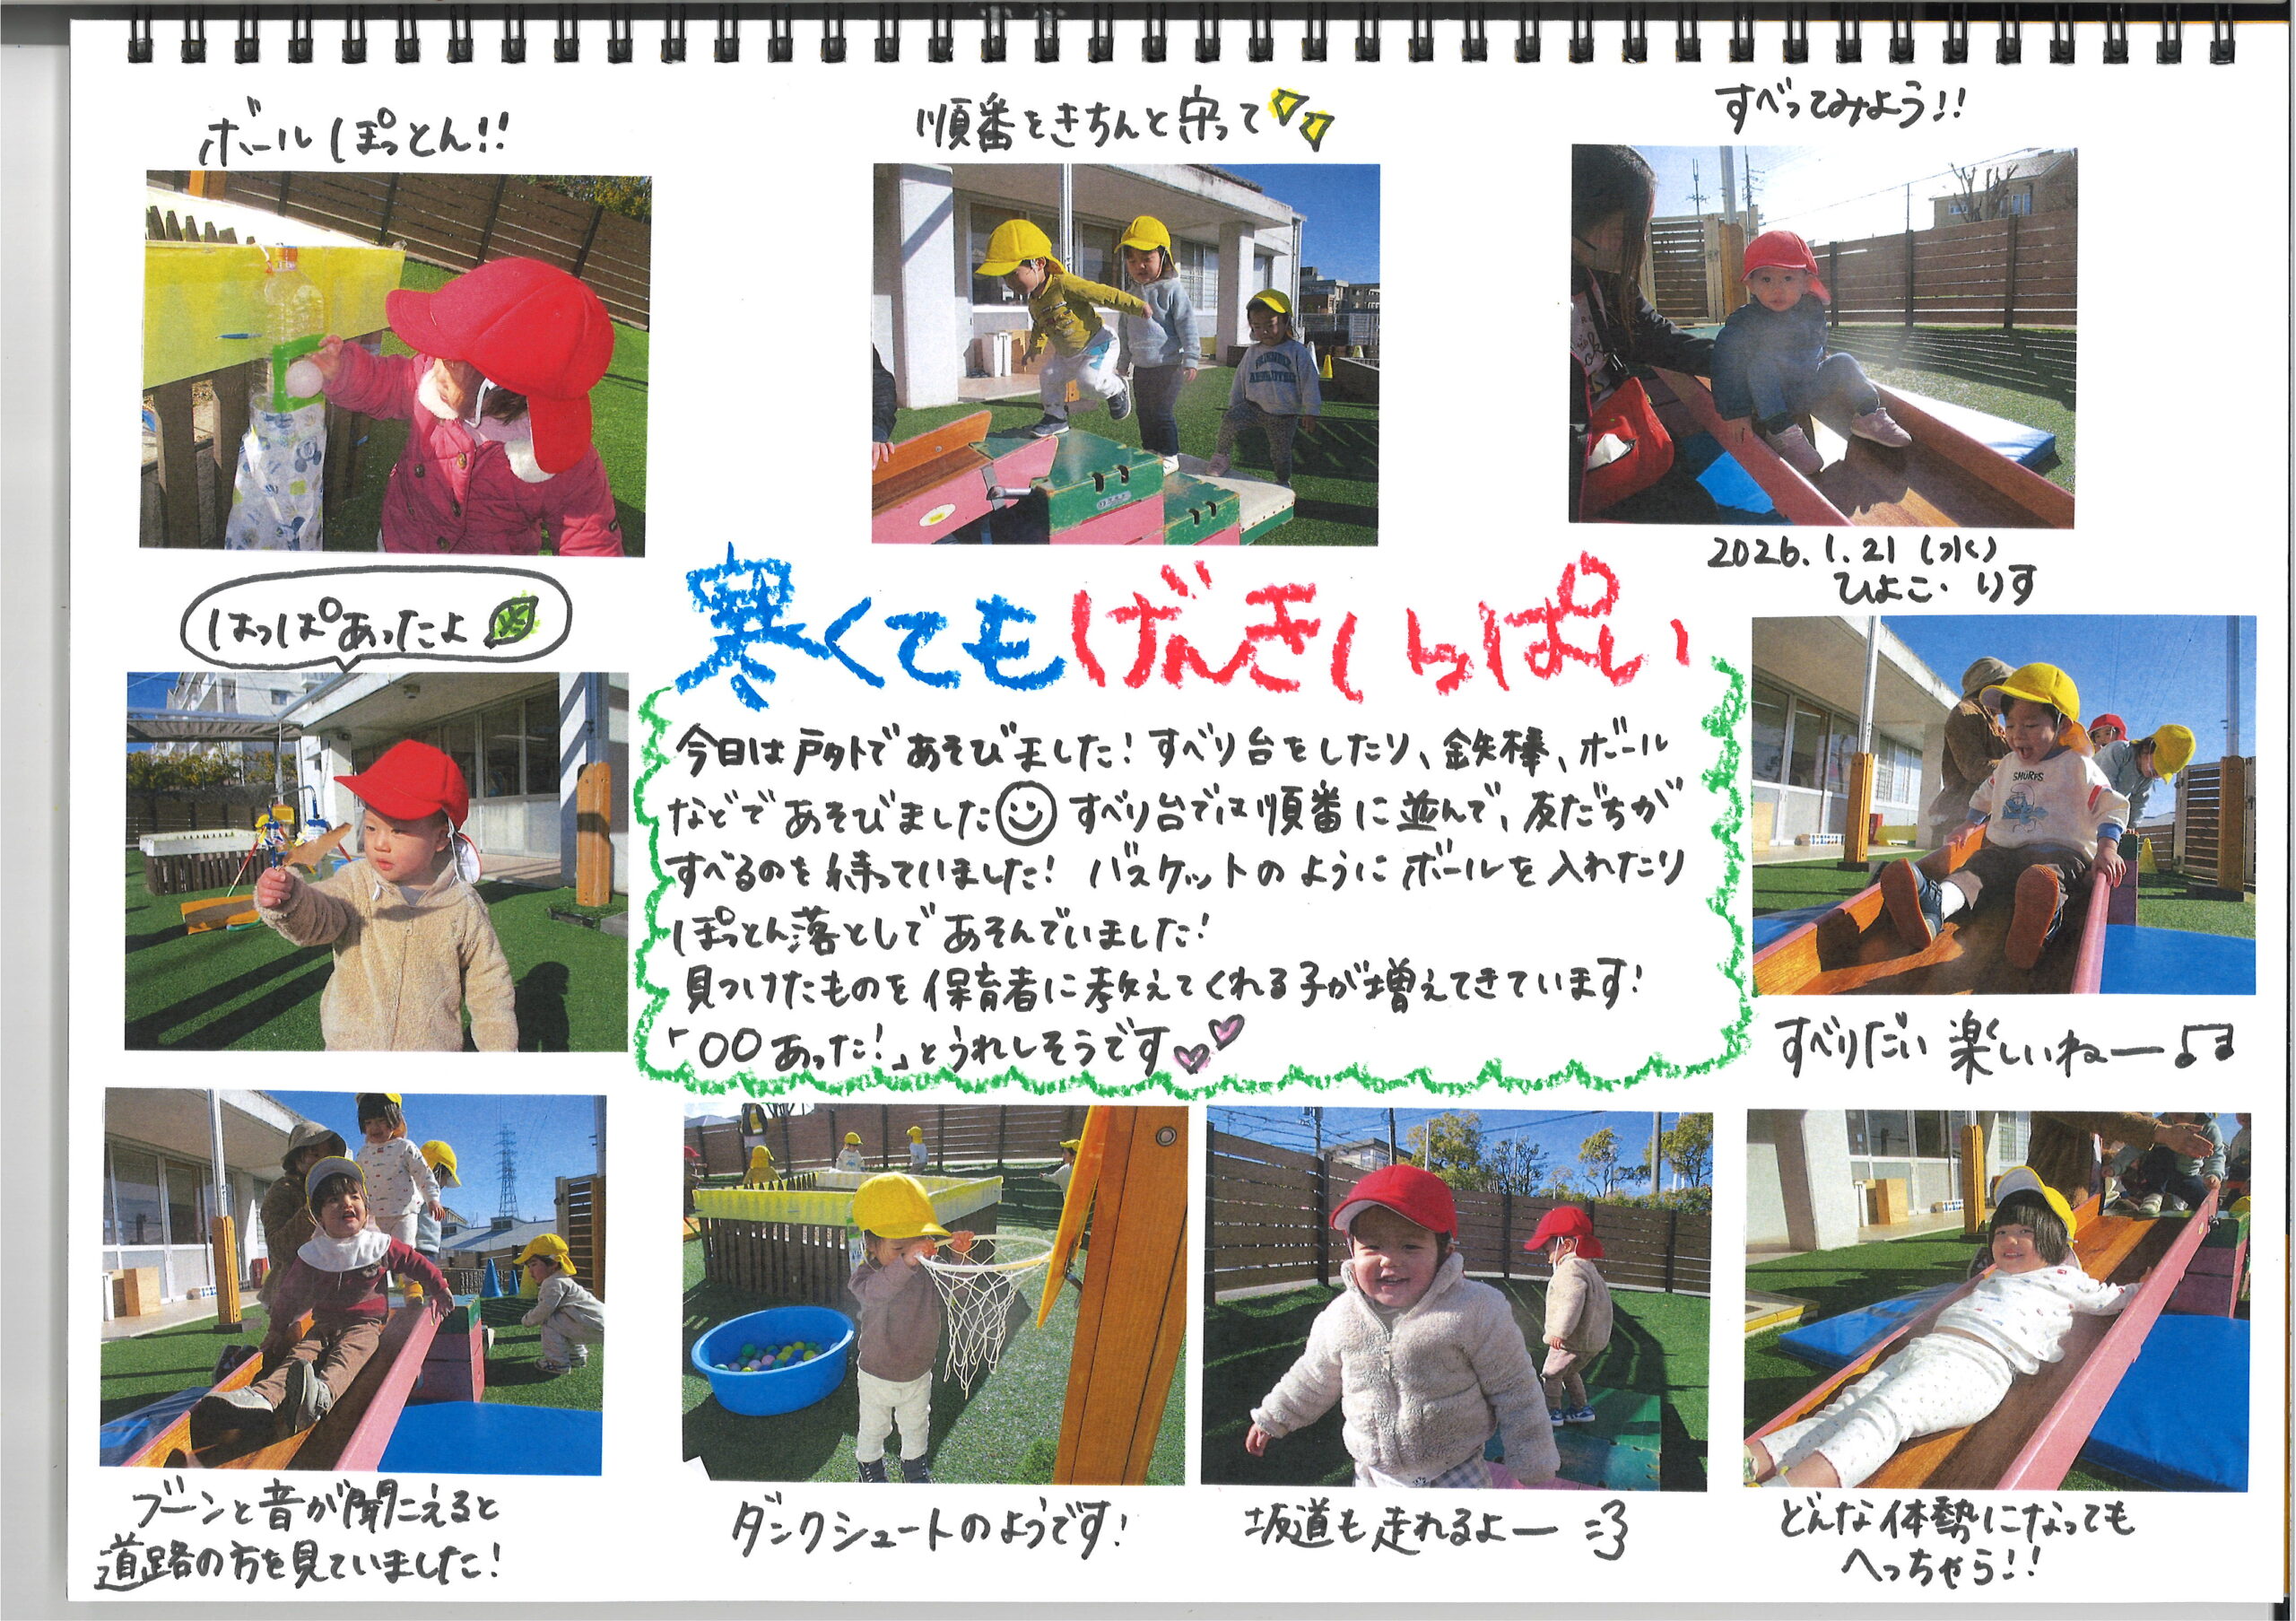 ボールぽっとん!!
順番をきちんと守って
すべってみよう!!
2026.1.21(水)
ひよこ・りす
はっぱあったよ
寒くてもげんきいっぱい
今日は戸外であそびました!すべり台をしたり、鉄棒、ボール
などであそびました すべり台では順番に並んで、友だちが
すべるのを待っていました! バスケットのようにボールを入れたり
ぽっとん落としであそんでいました!
見つけたものを保育者に教えてくれる子が増えてきています!
「○○あった!」とうれしそうです
SMURFS
すべりだい楽しいねー♫
ブーンと音が聞こえると
道路の方を見ていました!
ダンクシュートのようです!
坂道も走れるよー
どんな体勢になっても
へっちゃら!!